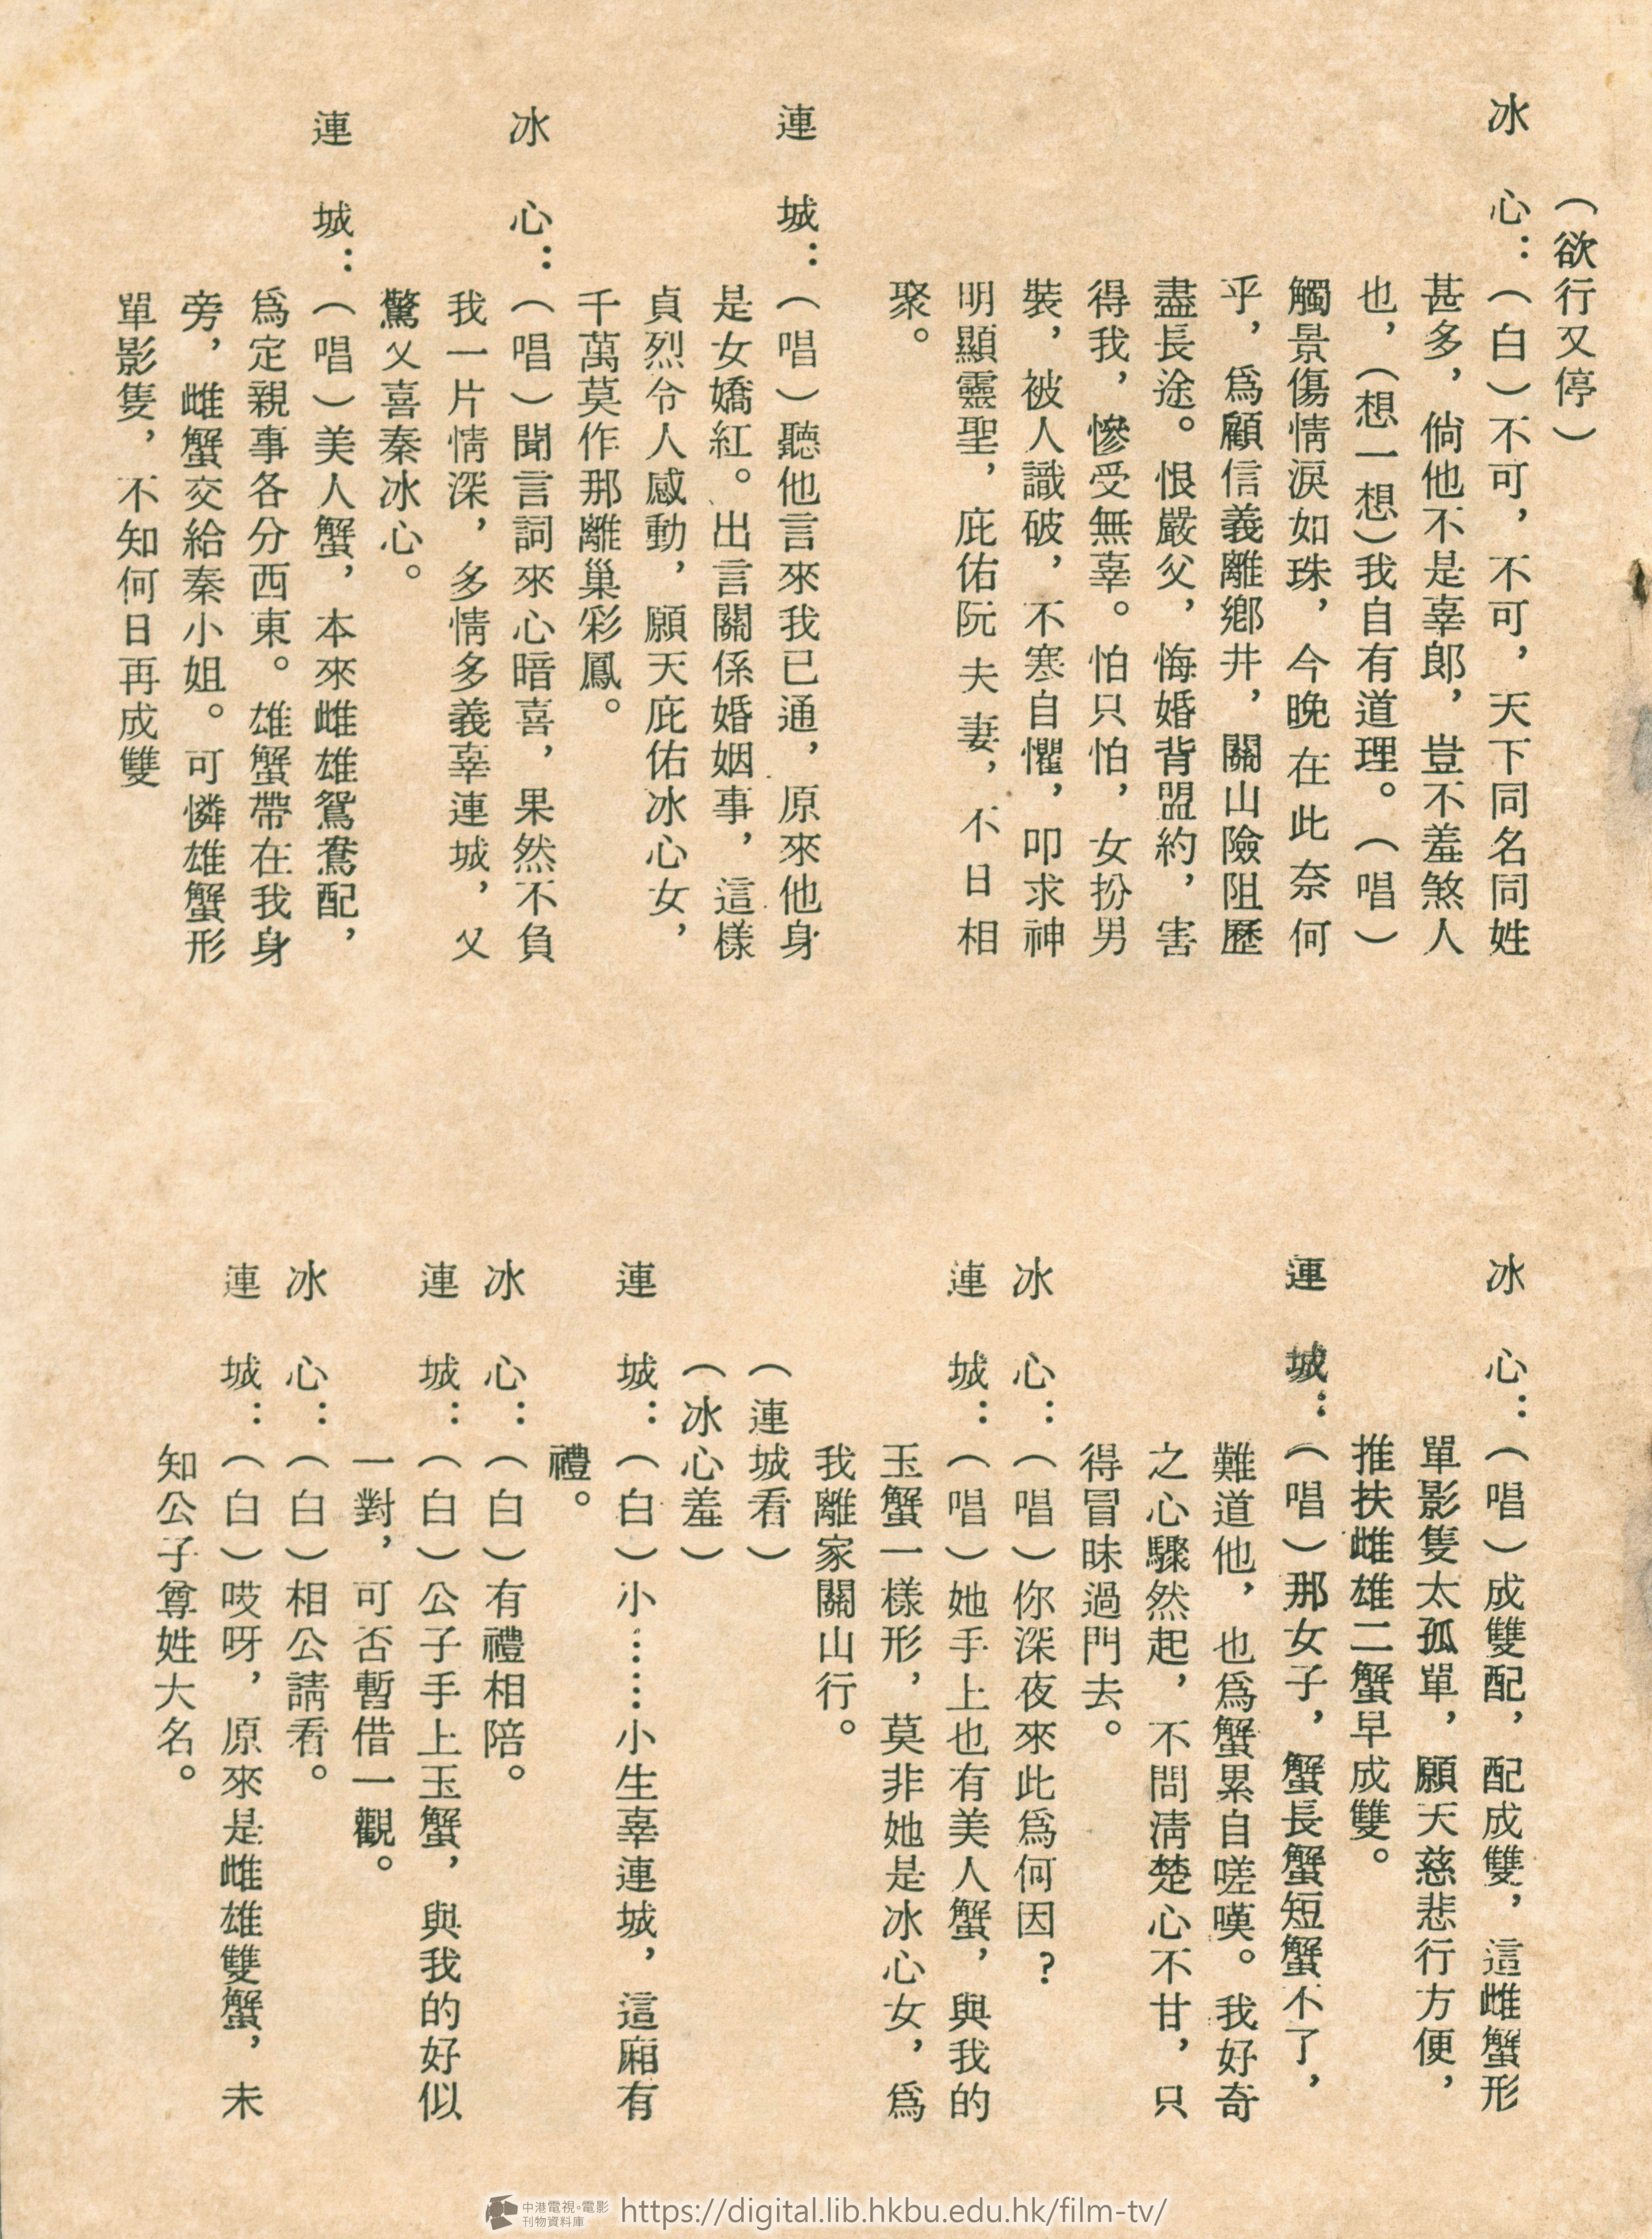 （欲行又停）
冰　心：（白）不可，不可，天下同名同姓
甚多，倘他不是辜郎，豈不羞煞人
也，（想一想）我自有道理。（唱）
觸景傷情淚如珠，今晚在此奈何
乎，爲顧信義離鄉井，關山險阻歷
盡長途。恨嚴父，悔婚背盟約，害
得我，慘受無辜。怕只怕，女扮男
裝，被人識破，不寒自懼，叩求神
明顯靈聖，庇佑阮夫妻，不日相
聚。
連　城：（唱）聽他言來我已通，原來他身
是女嬌紅。出言關係婚姻事，這樣
貞烈令人感動，願天庇佑冰心女，
千萬莫作那離巢彩鳳。
冰　心：（唱）聞言詞來心暗喜，果然不負
我一片情深，多情多義辜連城，又
驚又喜秦冰心。
連　城：（唱）美人蟹，本來雌雄鴛鴦配，
爲定親事各分西東。雄蟹帶在我身
旁，雌蟹交給秦小姐。可憐雄蟹形
單影隻，不知何日再成雙
冰　心：（唱）成雙配，配成雙，這雌蟹形
單影隻太孤單，願天慈悲行方便，
推扶雌雄二蟹早成雙。
連　城：（唱）那女子，蟹長蟹短蟹不了，
難道他，也爲蟹累自嗟嘆。我好奇
之心驟然起，不問清楚心不甘，只
得冒昧過門去。
冰　心：（唱）你深夜來此爲何因？
連　城：（唱）她手上也有美人蟹，與我的
玉蟹一樣形，莫非她是冰心女，爲
我離家關山行。
（連城看）
（冰心羞）
連　城：（白）小……小生辜連城，這廂有
禮。
冰　心：（白）有禮相陪。
連　城：（白）公子手上玉蟹，與我的好似
一對，可否暫借一觀。
冰　心：（白）相公請看。
連　城：（白）哎呀，原來是雌雄雙蟹，未
知公子尊姓大名。
中港電視·電影
刊物資料庫
https://digital.lib.hkbu.edu.hk/film-tv/